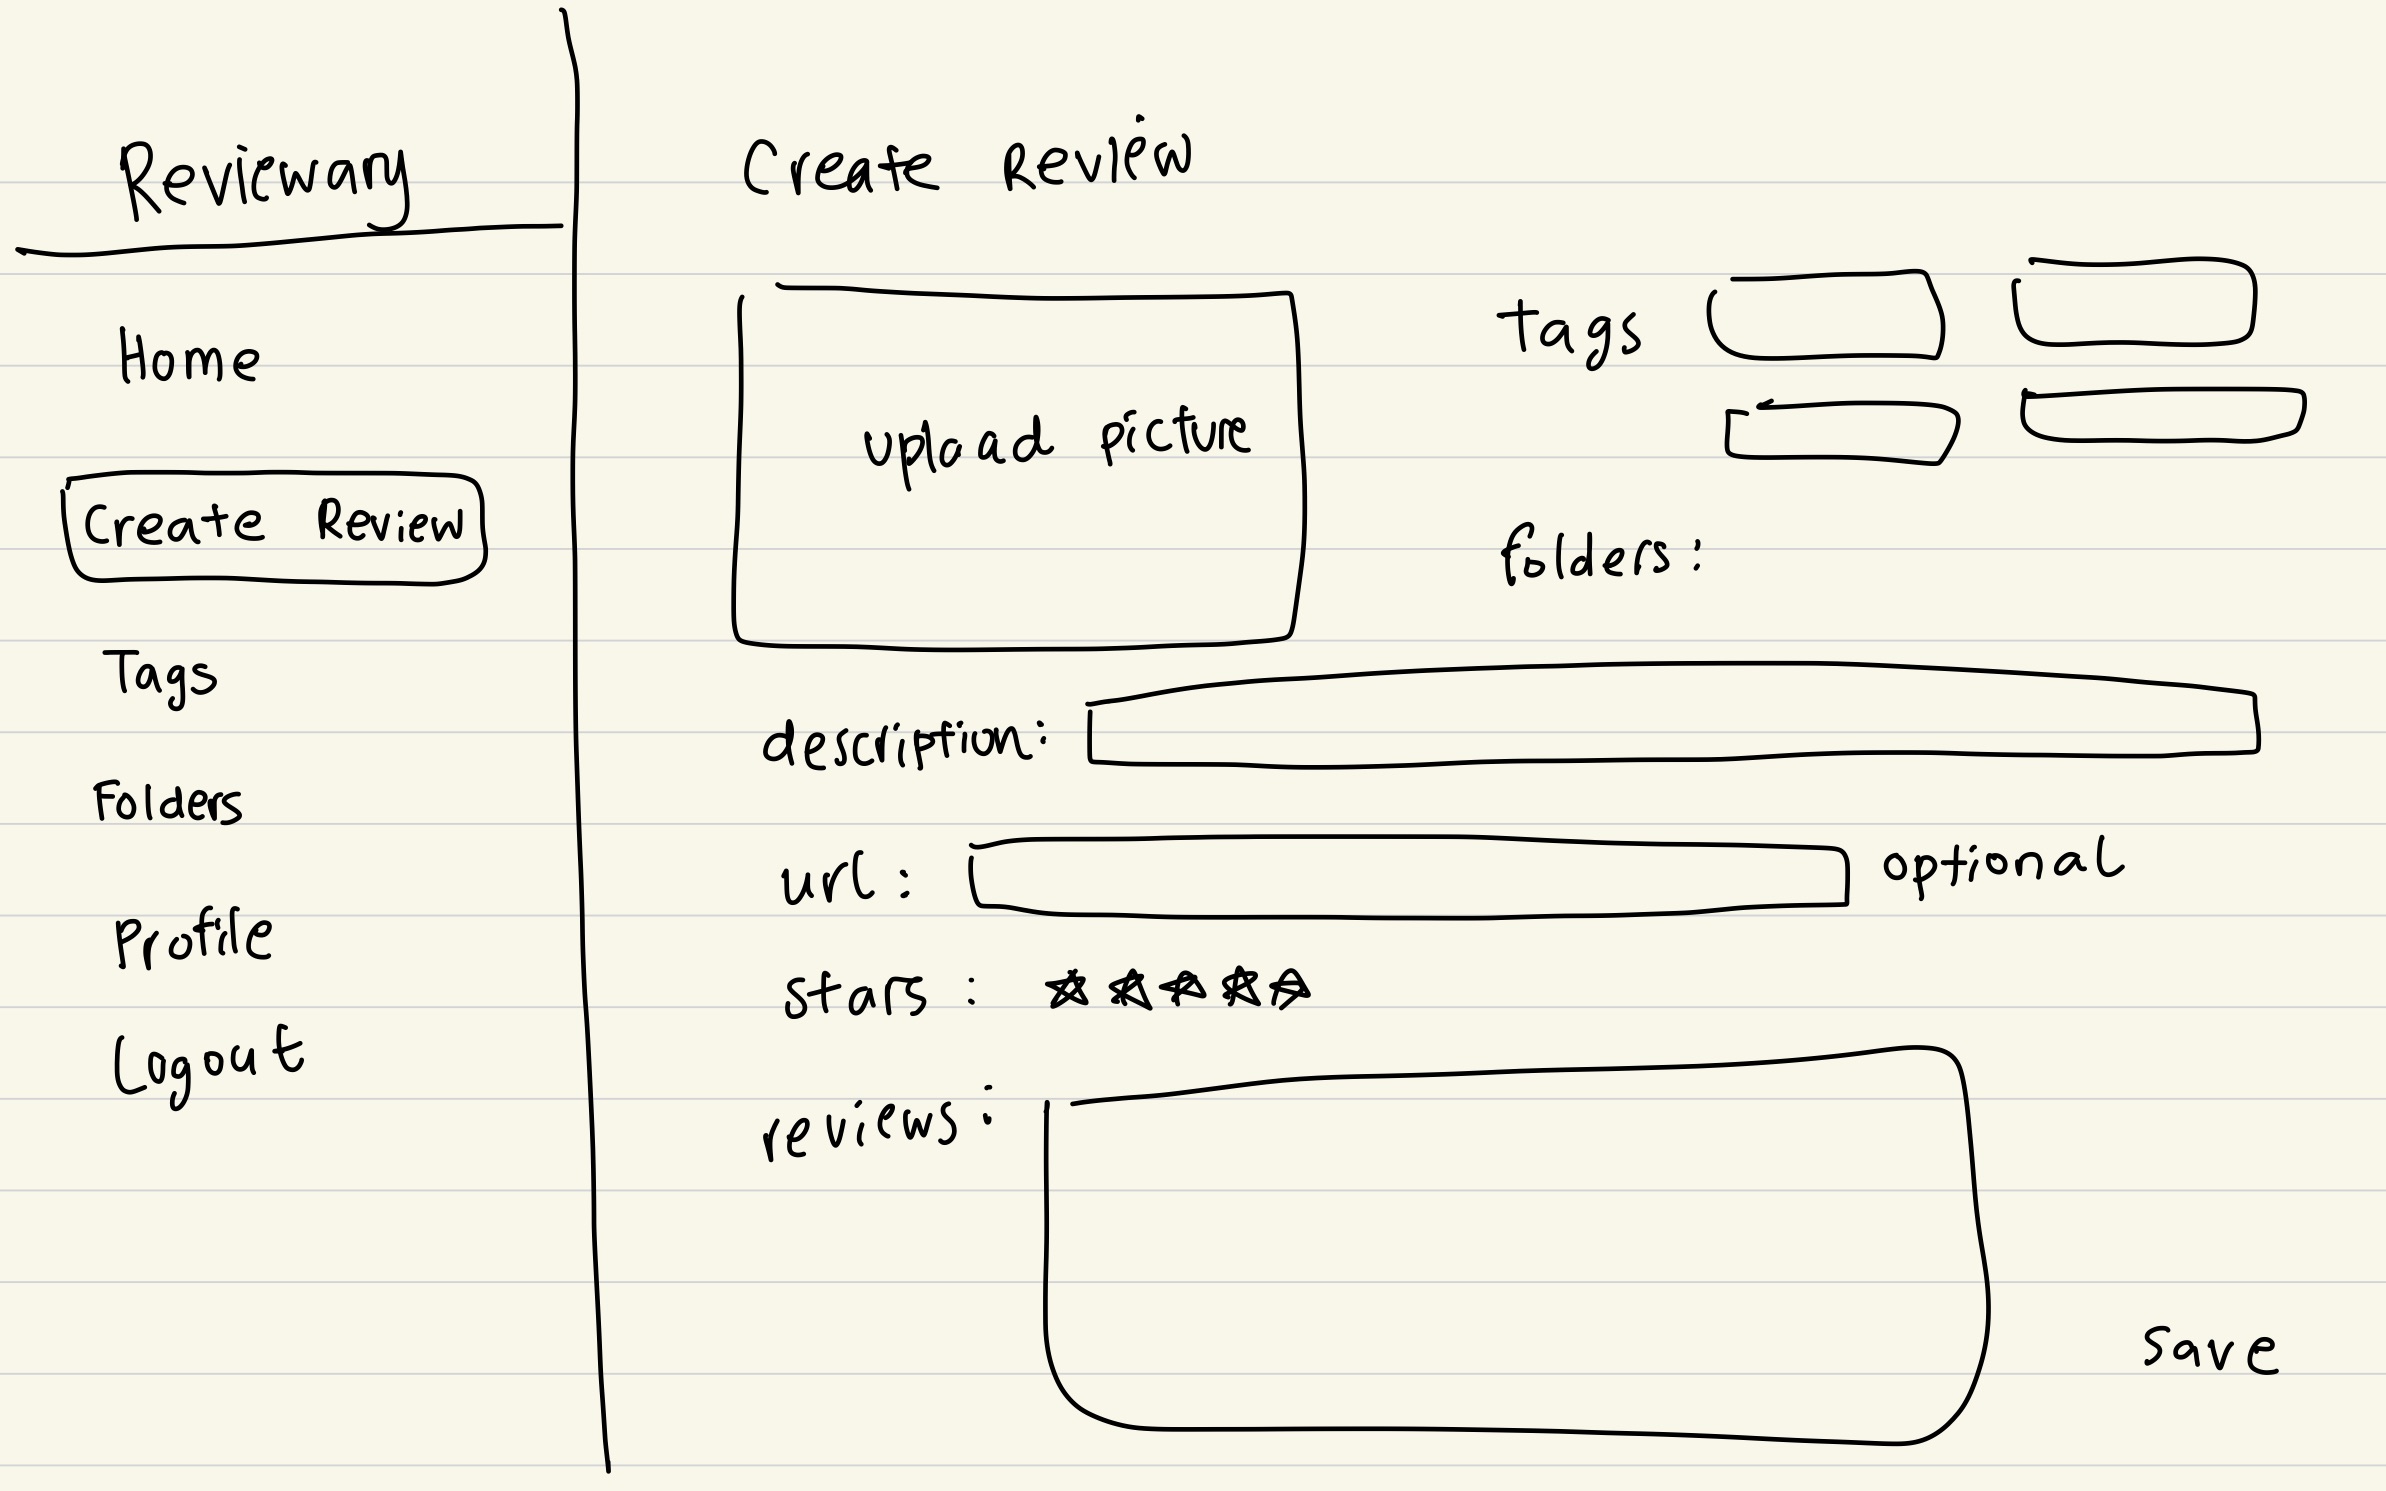 Reviewary
Home
Create Review
Tags
Folders
Profile
Logout
Create Review
upload picture
Tags
folders:
description:
url:
optional
stars:
reviews:
save